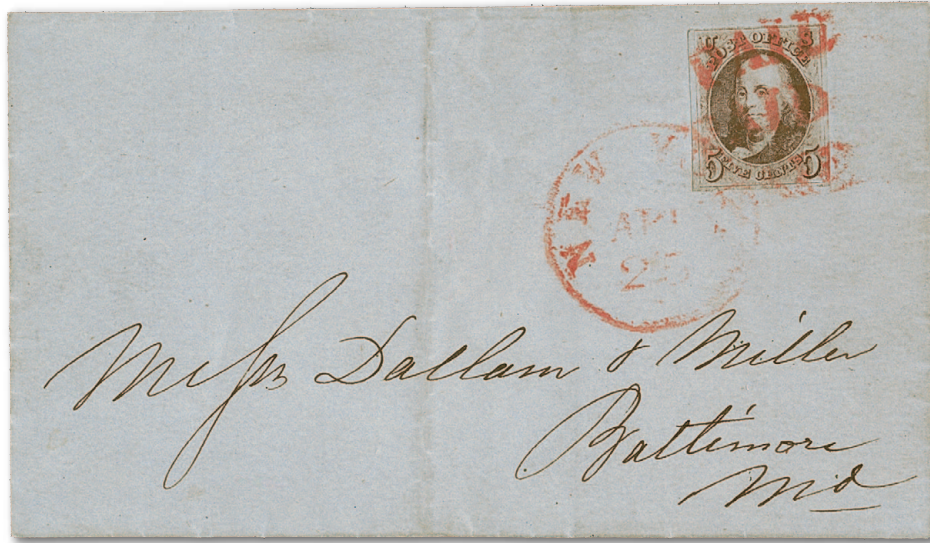 U S
POST OFFICE
FIVE CENTS
5 5
PAID
NEW
25
Messrs Dallam & Miller
Baltimore
Md